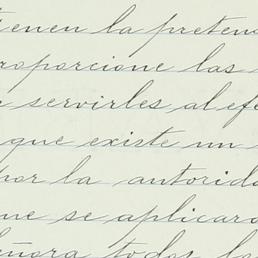 tienen la pretens
roporcione las
servirles al efe
que existe un
por la autorida
ue se aplicaro
eñora todas la